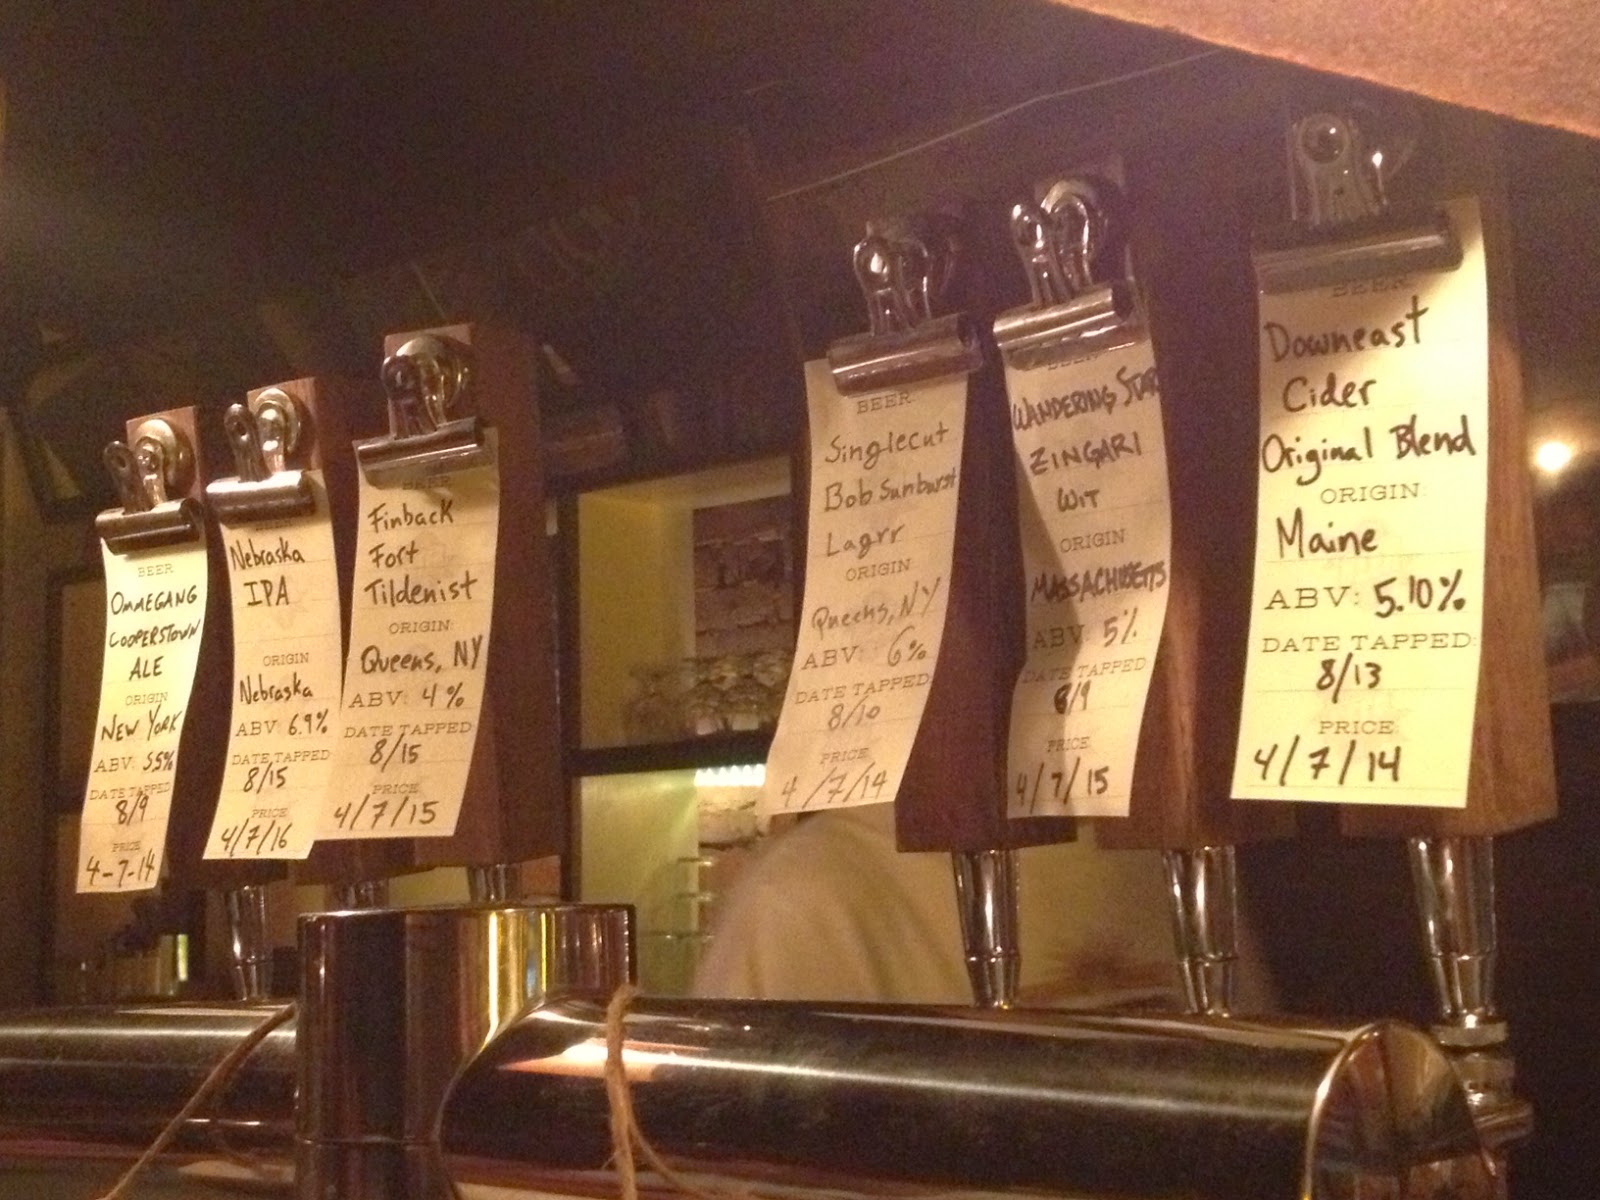 BEER
OMMEGANG
COOPERSTOWN
ALE
ORIGIN
NEW YORK
ABV: 5.5%
DATE TAPPED
8/9
PRICE
4-7-14
BEER
Nebraska
IPA
ORIGIN
Nebraska
ABV: 6.9%
DATE TAPPED
8/15
PRICE
4/7/16
BEER
Finback
Fort
Tildenist
ORIGIN:
Queens, NY
ABV: 4%
DATE TAPPED
8/15
PRICE
4/7/15
BEER:
Singlecut
Bob Sunburst
Lagrr
ORIGIN
Queens, NY
ABV: 6%
DATE TAPPED:
8/10
PRICE
4/7/14
BEER
WANDERING STAR
ZINGARI
WIT
ORIGIN
MASSACHUSETTS
ABV: 5%
DATE TAPPED
8/9
PRICE
4/7/15
BEER:
Downeast
Cider
Original Blend
ORIGIN:
Maine
ABV: 5.10%
DATE TAPPED:
8/13
PRICE:
4/7/14